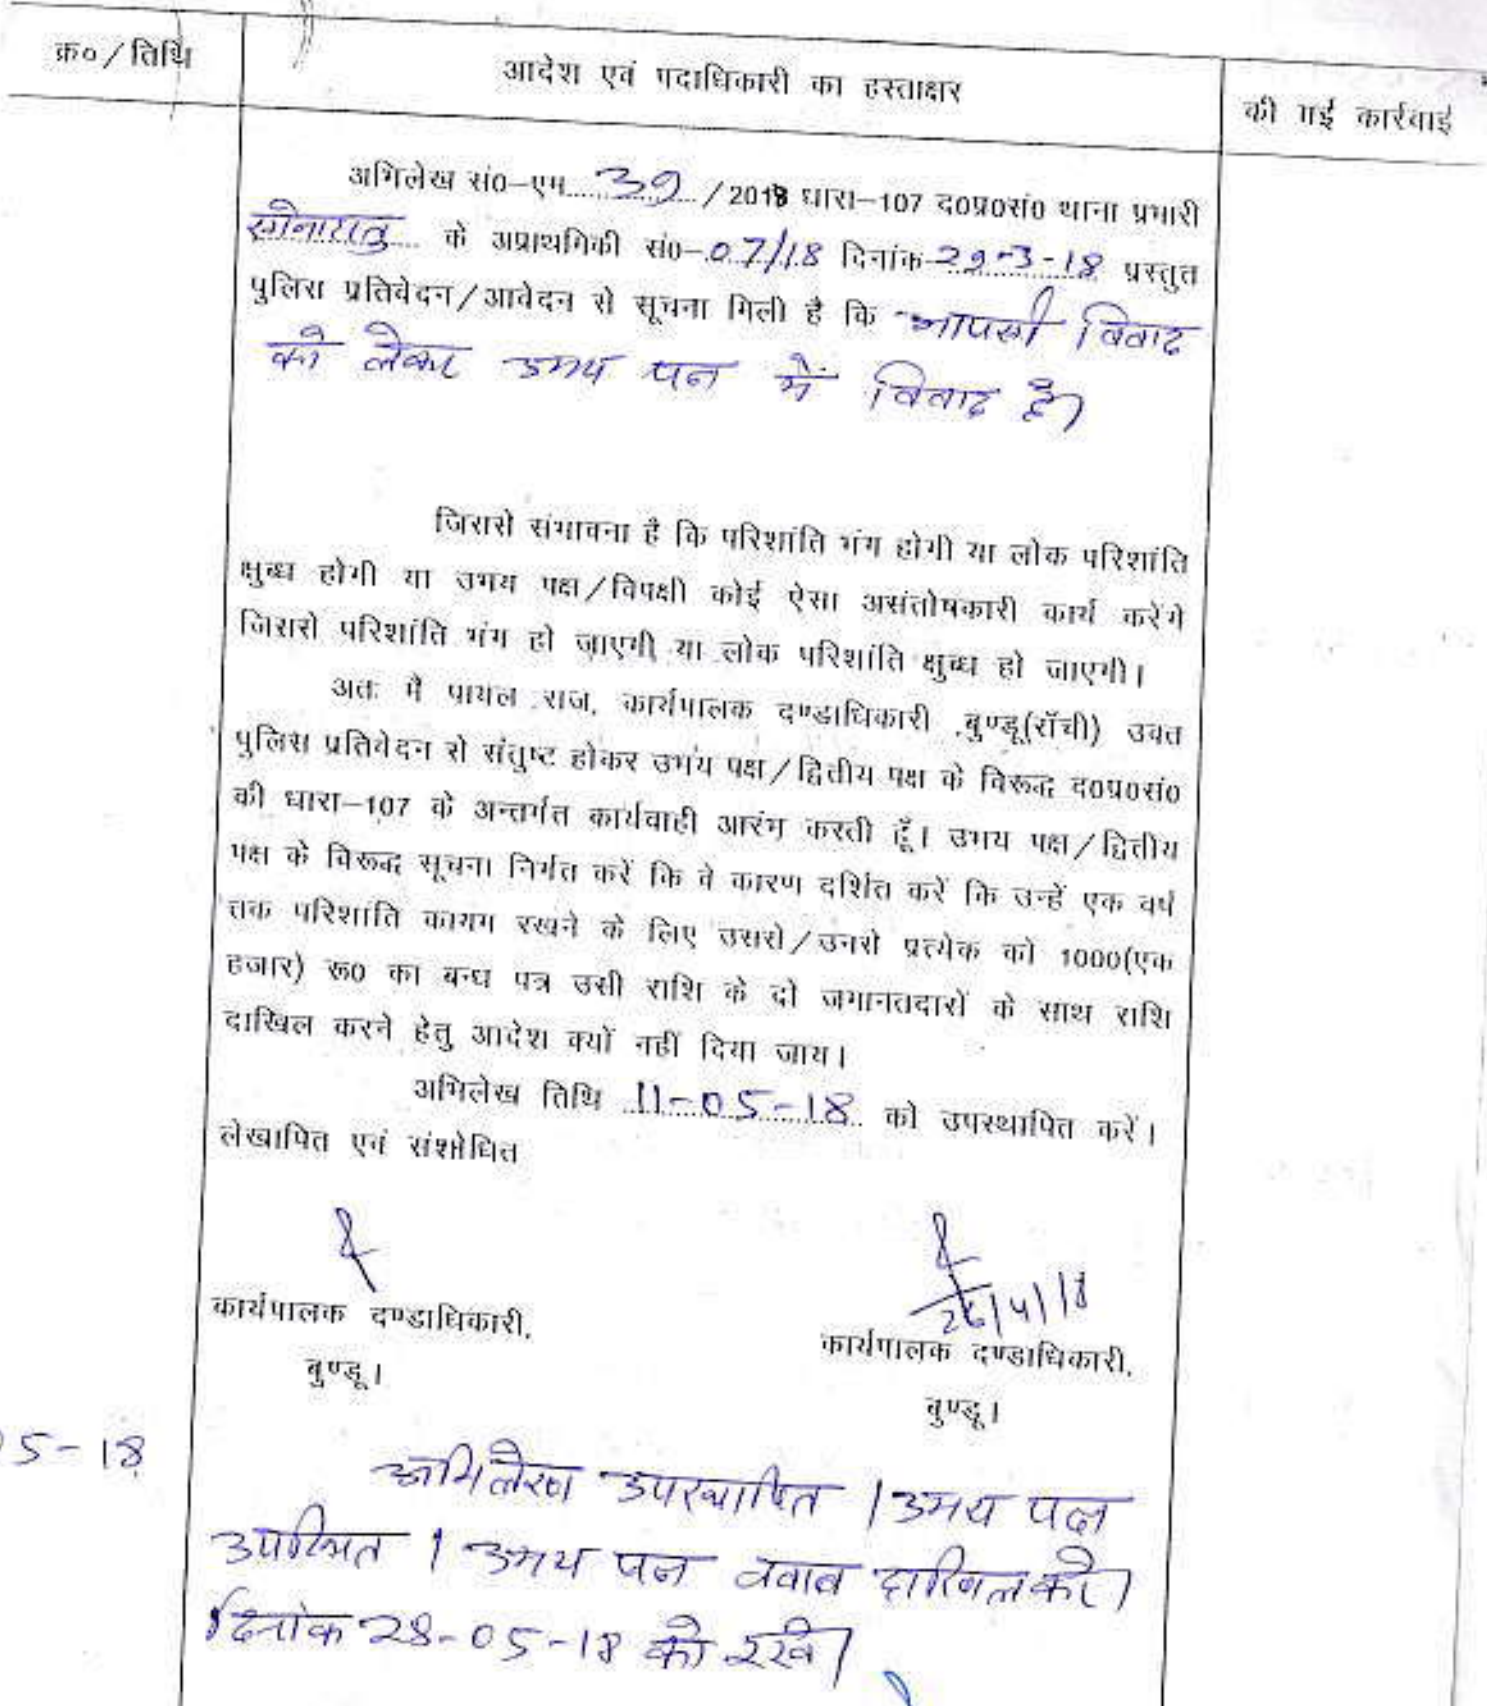 क्र०/तिथि
आदेश एवं पदाधिकारी का हस्ताक्षर
की गई कार्रवाई
अभिलेख सं०-एम 39 /2018 धारा-107 द०प्र०सं० थाना प्रभारी
सोनाहातु के अप्राथमिकी सं०-07/18 दिनांक 29-3-18 प्रस्तुत
पुलिस प्रतिवेदन/आवेदन से सूचना मिली है कि आपसी विवाद
को लेकर उभय पक्ष में विवाद है।
जिससे संभावना है कि परिशांति भंग होगी या लोक परिशांति
क्षुब्ध होगी या उभय पक्ष/विपक्षी कोई ऐसा असंतोषकारी कार्य करेंगे
जिससे परिशांति भंग हो जाएगी या लोक परिशांति क्षुब्ध हो जाएगी।
अतः मैं पायल राज, कार्यपालक दण्डाधिकारी ,बुण्डू(राँची) उक्त
पुलिस प्रतिवेदन से संतुष्ट होकर उभय पक्ष/द्वितीय पक्ष के विरूद्ध द०प्र०सं०
की धारा-107 के अन्तर्गत कार्यवाही आरंभ करती हूँ। उभय पक्ष/द्वितीय
पक्ष के विरूद्ध सूचना निर्गत करें कि वे कारण दर्शित करें कि उन्हें एक वर्ष
तक परिशांति कायम रखने के लिए उससे/उनसे प्रत्येक को 1000(एक
हजार) रू० का बन्ध पत्र उसी राशि के दो जमानतदारों के साथ राशि
दाखिल करने हेतु आदेश क्यों नहीं दिया जाय।
अभिलेख तिथि 11-05-18 को उपस्थापित करें।
लेखापित एवं संशोधित
26/4/18
कार्यपालक दण्डाधिकारी,
कार्यपालक दण्डाधिकारी,
बुण्डू।
बुण्डू।
5-18
अभिलेख उपस्थापित। उभय पक्ष
उपस्थित। उभय पक्ष जवाब दाखिल करें।
दिनांक 28-05-18 को रखें।